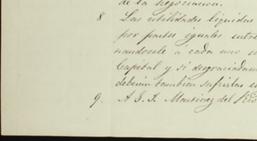 de la negociacion.
8 Las utilidades liquidas
por partes iguales entre
nandosele a cada uno s
Capital y si desgraciadam
deberán tambien sufrirlas
9. A J. J. Martinez del